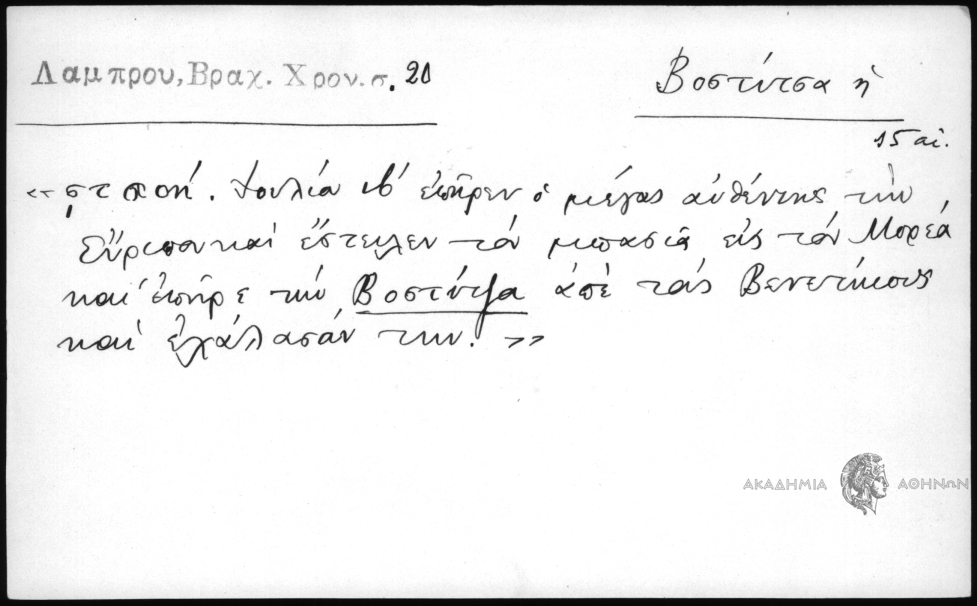 Λαμπρου, Βραχ. Χρον. σ. 20
Βοστίτσα ἡ
15 αἰ.
«ϛϡοή. Ἰουλίῳ ιβ' ἐπῆρεν ὁ μέγας αὐθέντης τὴν
Εὔριπον καὶ ἔστειλεν τὸν μπασιᾶ εἰς τὸν Μορέα
καὶ ἐπῆρε τὴν Βοστίτζα ἀπὲ τοὺς Βενετίκους
καὶ ἐχάλασάν την. »
ΑΚΑΔΗΜΙΑ ΑΘΗΝΩΝ